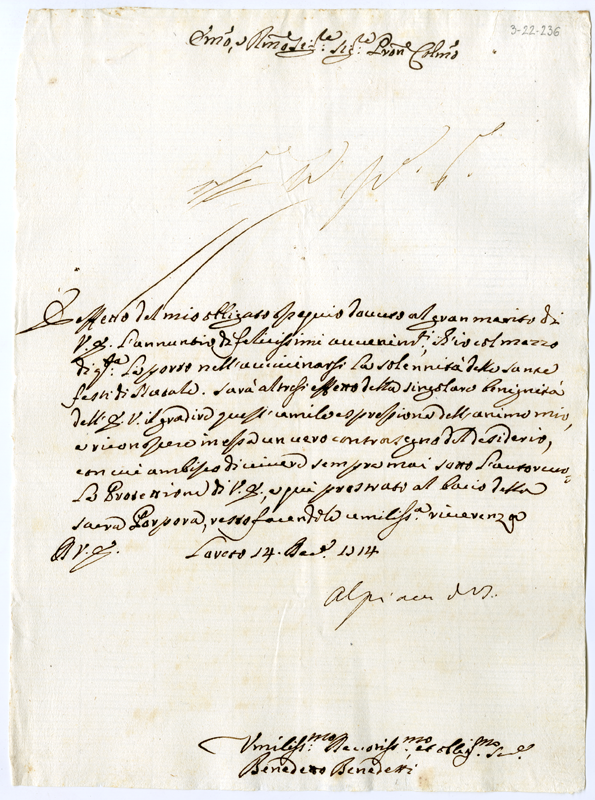 3-22-236
Em̃o, e Rm̃o Sig:re Sig:re Pron̄e Colm̃o
È effetto del mio obligato ossequio dovuto al gran merito di
V. E. l'annuntio di felicissimi avvenim.ti, ch'io col mezzo
di q.sta Le porto nell'avvicinarsi La solennità delle sante
feste di Natale. Sarà altresì effetto della singolare benignità
dell'E. V. il gradire quest'umile espressione dell'animo mio,
e riconoscere in essa un vero contrasegno del desiderio,
con cui ambisco di vivere sempre mai sotto L'autorevo-
Le Protettione di V. E., e qui prostrato al bacio della
sacra Porpora, resto facendole umiliss.a riverenza
D V. E. Loreto 14. Dec.e 1714
Umiliss.mo Devotiss.mo et oblig.mo Se.
Benedetto Benedetti